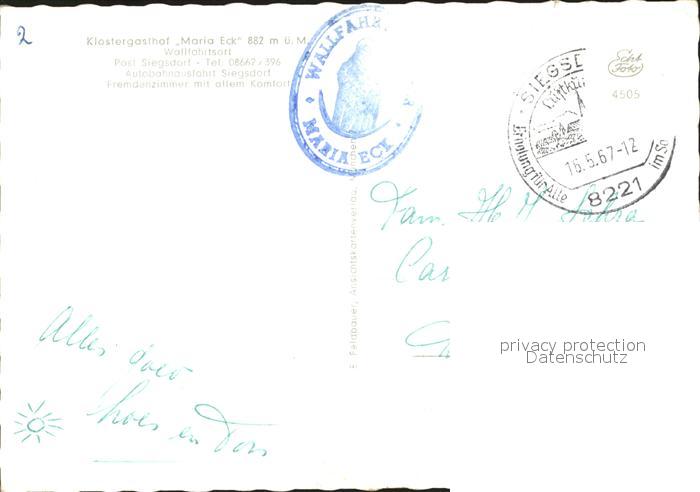 2
Klostergasthof „Maria Eck" 882 m ü. M
Wallfahrtsort
Post Siegsdorf - Tel. 08662/396
Autobahnausfahrt Siegsdorf
Fremdenzimmer mit allem Komfort
WALLFAH
MARIA ECK
SIEGSD
Erholung für Alle
16.5.67-12
8221
im So
Echt Foto
4505
E. Feldbauer, Ansichtskartenverlag, München
Fam.
Cas
privacy protection
Datenschutz
Alles
en